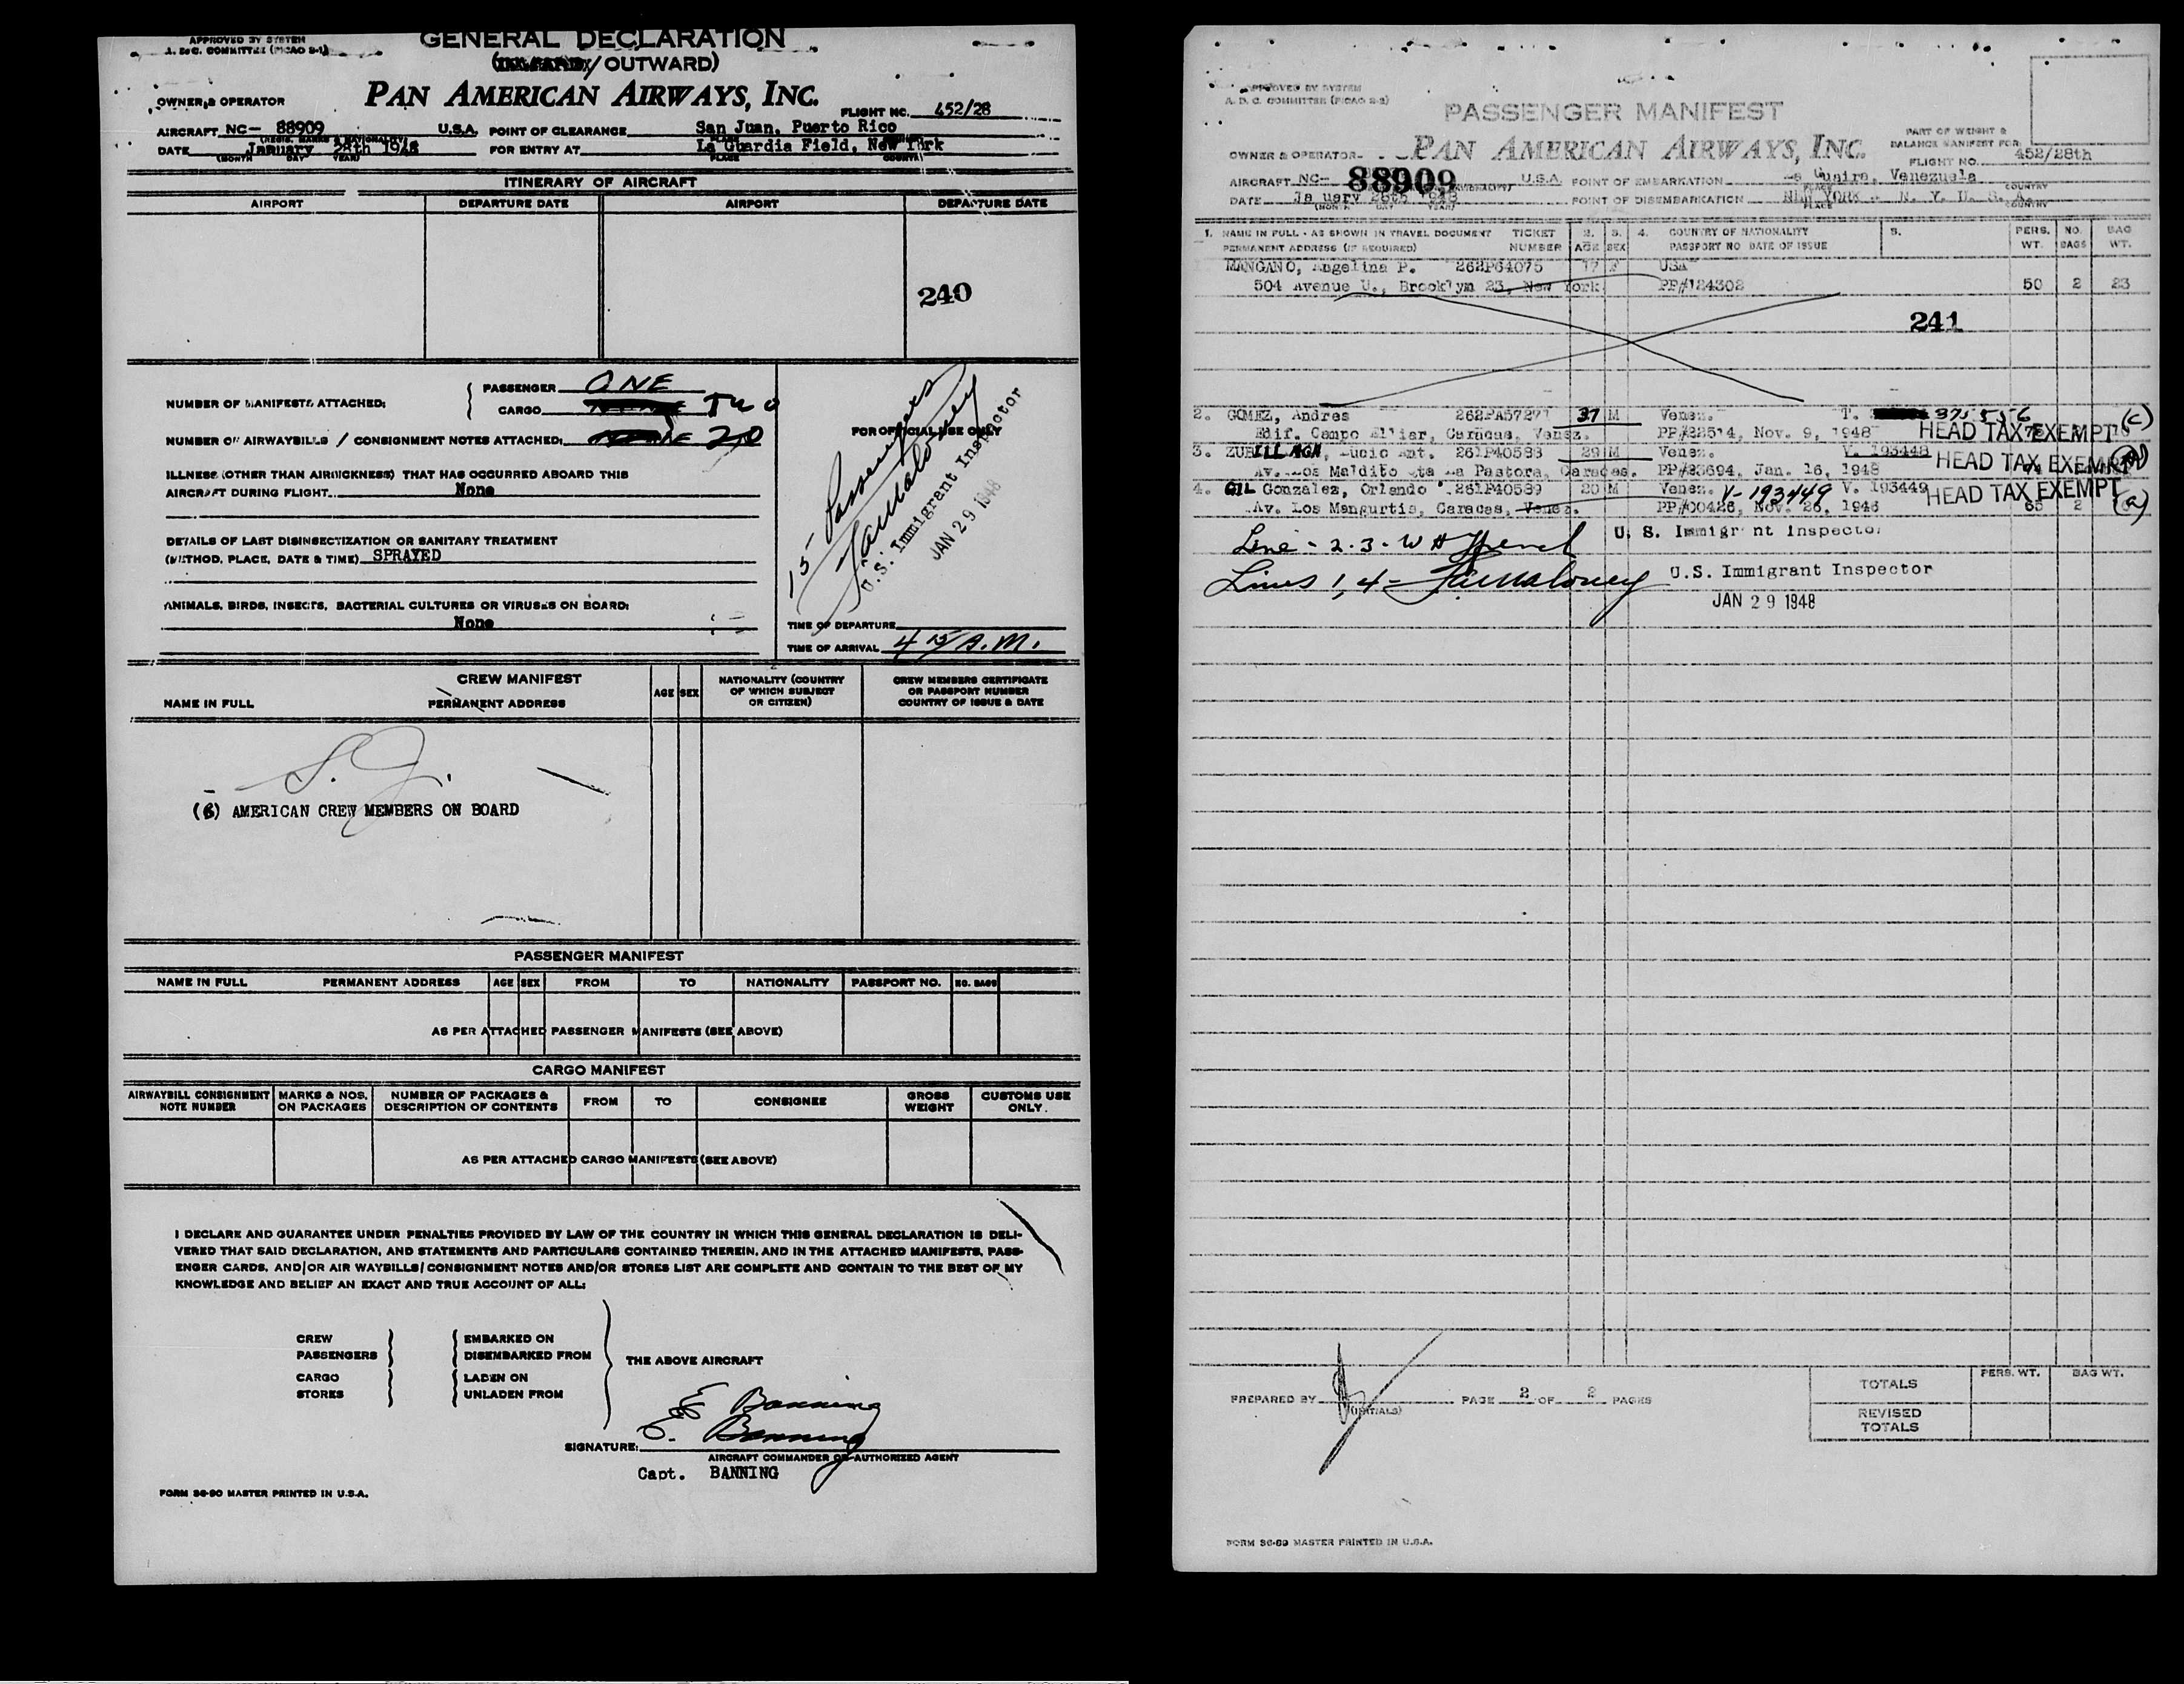 APPROVED BY SYSTEM
A. D. C. COMMITTEE (PICAO S-1)
GENERAL DECLARATION
(INWARD/OUTWARD)
PAN AMERICAN AIRWAYS, INC.
OWNER & OPERATOR
FLIGHT NO. 452/28
AIRCRAFT NC- 88909 U.S.A. POINT OF CLEARANCE San Juan, Puerto Rico
(REGIS. MARKS & NATIONALITY) PLACE
DATE January 28th 1948 FOR ENTRY AT La Guardia Field, New York
(MONTH DAY YEAR) PLACE COUNTRY
ITINERARY OF AIRCRAFT
AIRPORT DEPARTURE DATE AIRPORT DEPARTURE DATE
240
NUMBER OF MANIFESTS ATTACHED: PASSENGER ONE
CARGO TWO
NUMBER OF AIRWAYBILLS / CONSIGNMENT NOTES ATTACHED: 20
ILLNESS (OTHER THAN AIRSICKNESS) THAT HAS OCCURRED ABOARD THIS
AIRCRAFT DURING FLIGHT. None
DETAILS OF LAST DISINSECTIZATION OR SANITARY TREATMENT
(METHOD, PLACE, DATE & TIME) SPRAYED
ANIMALS, BIRDS, INSECTS, BACTERIAL CULTURES OR VIRUSES ON BOARD:
None
FOR OFFICIAL USE ONLY
15 - Passengers
U.S. Immigrant Inspector
JAN 29 1948
TIME OF DEPARTURE
TIME OF ARRIVAL 4 15 A.M.
CREW MANIFEST
NAME IN FULL PERMANENT ADDRESS AGE SEX NATIONALITY (COUNTRY OF WHICH SUBJECT OR CITIZEN) CREW MEMBERS CERTIFICATE OR PASSPORT NUMBER COUNTRY OF ISSUE & DATE
S. J.
(6) AMERICAN CREW MEMBERS ON BOARD
PASSENGER MANIFEST
NAME IN FULL PERMANENT ADDRESS AGE SEX FROM TO NATIONALITY PASSPORT NO. NO. BAGS
AS PER ATTACHED PASSENGER MANIFESTS (SEE ABOVE)
CARGO MANIFEST
AIRWAYBILL CONSIGNMENT NOTE NUMBER MARKS & NOS. ON PACKAGES NUMBER OF PACKAGES & DESCRIPTION OF CONTENTS FROM TO CONSIGNEE GROSS WEIGHT CUSTOMS USE ONLY.
AS PER ATTACHED CARGO MANIFESTS (SEE ABOVE)
I DECLARE AND GUARANTEE UNDER PENALTIES PROVIDED BY LAW OF THE COUNTRY IN WHICH THIS GENERAL DECLARATION IS DELI-
VERED THAT SAID DECLARATION, AND STATEMENTS AND PARTICULARS CONTAINED THEREIN, AND IN THE ATTACHED MANIFESTS, PASS-
ENGER CARDS, AND/OR AIR WAYBILLS/CONSIGNMENT NOTES AND/OR STORES LIST ARE COMPLETE AND CONTAIN TO THE BEST OF MY
KNOWLEDGE AND BELIEF AN EXACT AND TRUE ACCOUNT OF ALL:
CREW EMBARKED ON
PASSENGERS DISEMBARKED FROM
THE ABOVE AIRCRAFT
CARGO LADEN ON
STORES UNLADEN FROM
E Banning
SIGNATURE: E. Banning
AIRCRAFT COMMANDER OR AUTHORIZED AGENT
Capt. BANNING
FORM 36-90 MASTER PRINTED IN U.S.A.
APPROVED BY SYSTEM
A. D. C. COMMITTEE (PICAO S-2)
PASSENGER MANIFEST
PAN AMERICAN AIRWAYS, INC.
PART OF WEIGHT & BALANCE MANIFEST FOR
OWNER & OPERATOR FLIGHT NO. 452/28th
AIRCRAFT NC- 88909 U.S.A. POINT OF EMBARKATION La Guaira, Venezuela
PLACE COUNTRY
DATE January 28th 1948 POINT OF DISEMBARKATION NEW YORK - N. Y. U. S. A.
(MONTH DAY YEAR) PLACE COUNTRY
1. NAME IN FULL - AS SHOWN IN TRAVEL DOCUMENT TICKET 2. 3. 4. COUNTRY OF NATIONALITY 5. PERS. NO. BAG
PERMANENT ADDRESS (IF REQUIRED) NUMBER AGE SEX PASSPORT NO DATE OF ISSUE WT. BAGS WT.
MANGANO, Angelina P. 262P64075 17 F USA
504 Avenue U., Brooklym 23, New York PP#124302 50 2 23
241
2. GOMEZ, Andres 37 M Venez. T. 375556 (c)
Edif. Campo Elliar, Caracas, Venez. PP#22514, Nov. 9, 1948 HEAD TAX EXEMPT
3. ZUBILLAGA, Lucio Ant. 261P40588 29 M Venez. V. 193448
Av. Los Maldito Pastora, Caracas. PP#23694, Jan. 16, 1948 HEAD TAX EXEMPT
4. GIL Gonzalez, Orlando 261P40589 20 M Venez. V-193449 V. 193449 HEAD TAX EXEMPT
Av. Los Mangurtis, Caracas, Venez. PP#00426, Nov. 26, 1946 65 2 (a)
Line - 2.3 - W H French U. S. Immigrant Inspector
Lines 1, 4 - U.S. Immigrant Inspector
JAN 29 1948
PREPARED BY (INITIALS) PAGE 2 OF 2 PAGES
TOTALS PERS. WT. BAG WT.
REVISED TOTALS
FORM 36-89 MASTER PRINTED IN U.S.A.